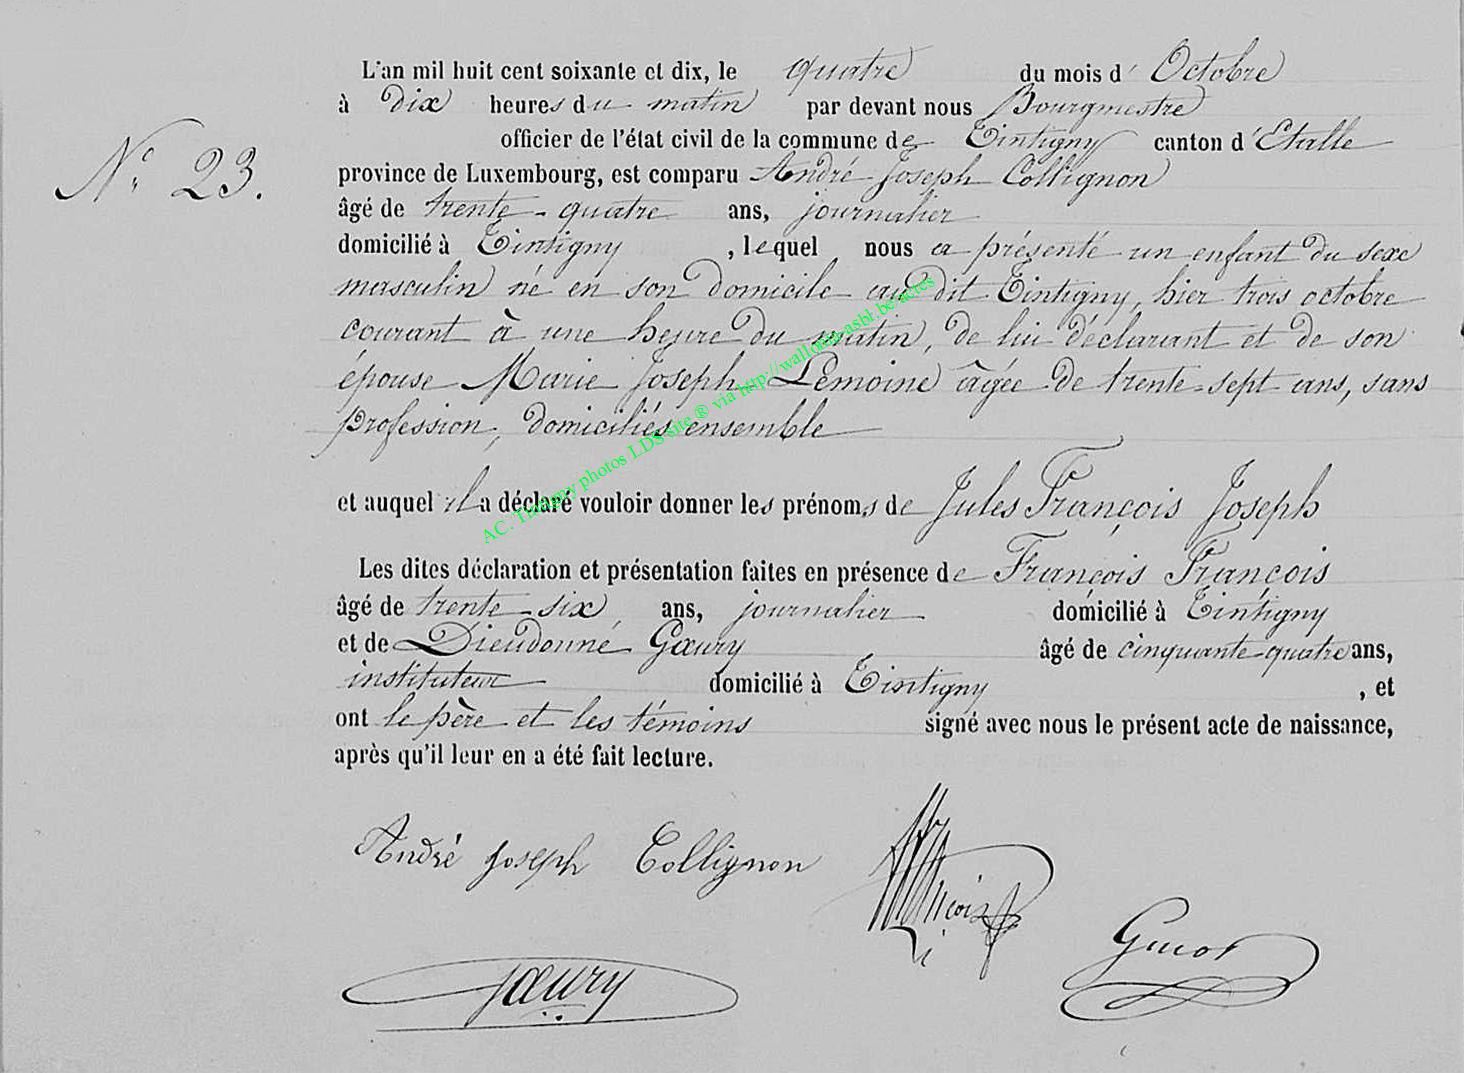 L'an mil huit cent soixante et dix, le quatre du mois d' Octobre
à dix heures du matin par devant nous Bourgmestre
officier de l'état civil de la commune de Tintigny canton d'Etalle
N° 23.
province de Luxembourg, est comparu André Joseph Collignon
âgé de trente-quatre ans, journalier
domicilié à Tintigny , lequel nous a présenté un enfant du sexe
masculin né en son domicile au dit Tintigny, hier trois octobre
courant à une heure du matin, de lui déclarant et de son
épouse Marie Joseph Lemoine âgée de trente-sept ans, sans
profession, domiciliés ensemble
et auquel il a déclaré vouloir donner les prénoms de Jules François Joseph
Les dites déclaration et présentation faites en présence de François François
âgé de trente-six ans, journalier domicilié à Tintigny
et de Dieudonné Gœury âgé de cinquante-quatre ans,
instituteur domicilié à Tintigny , et
ont le père et les témoins signé avec nous le présent acte de naissance,
après qu'il leur en a été fait lecture.
AC. Tintigny photos LDS site ® via http://wallonia-asbl.be/actes
André Joseph Collignon
Gœury